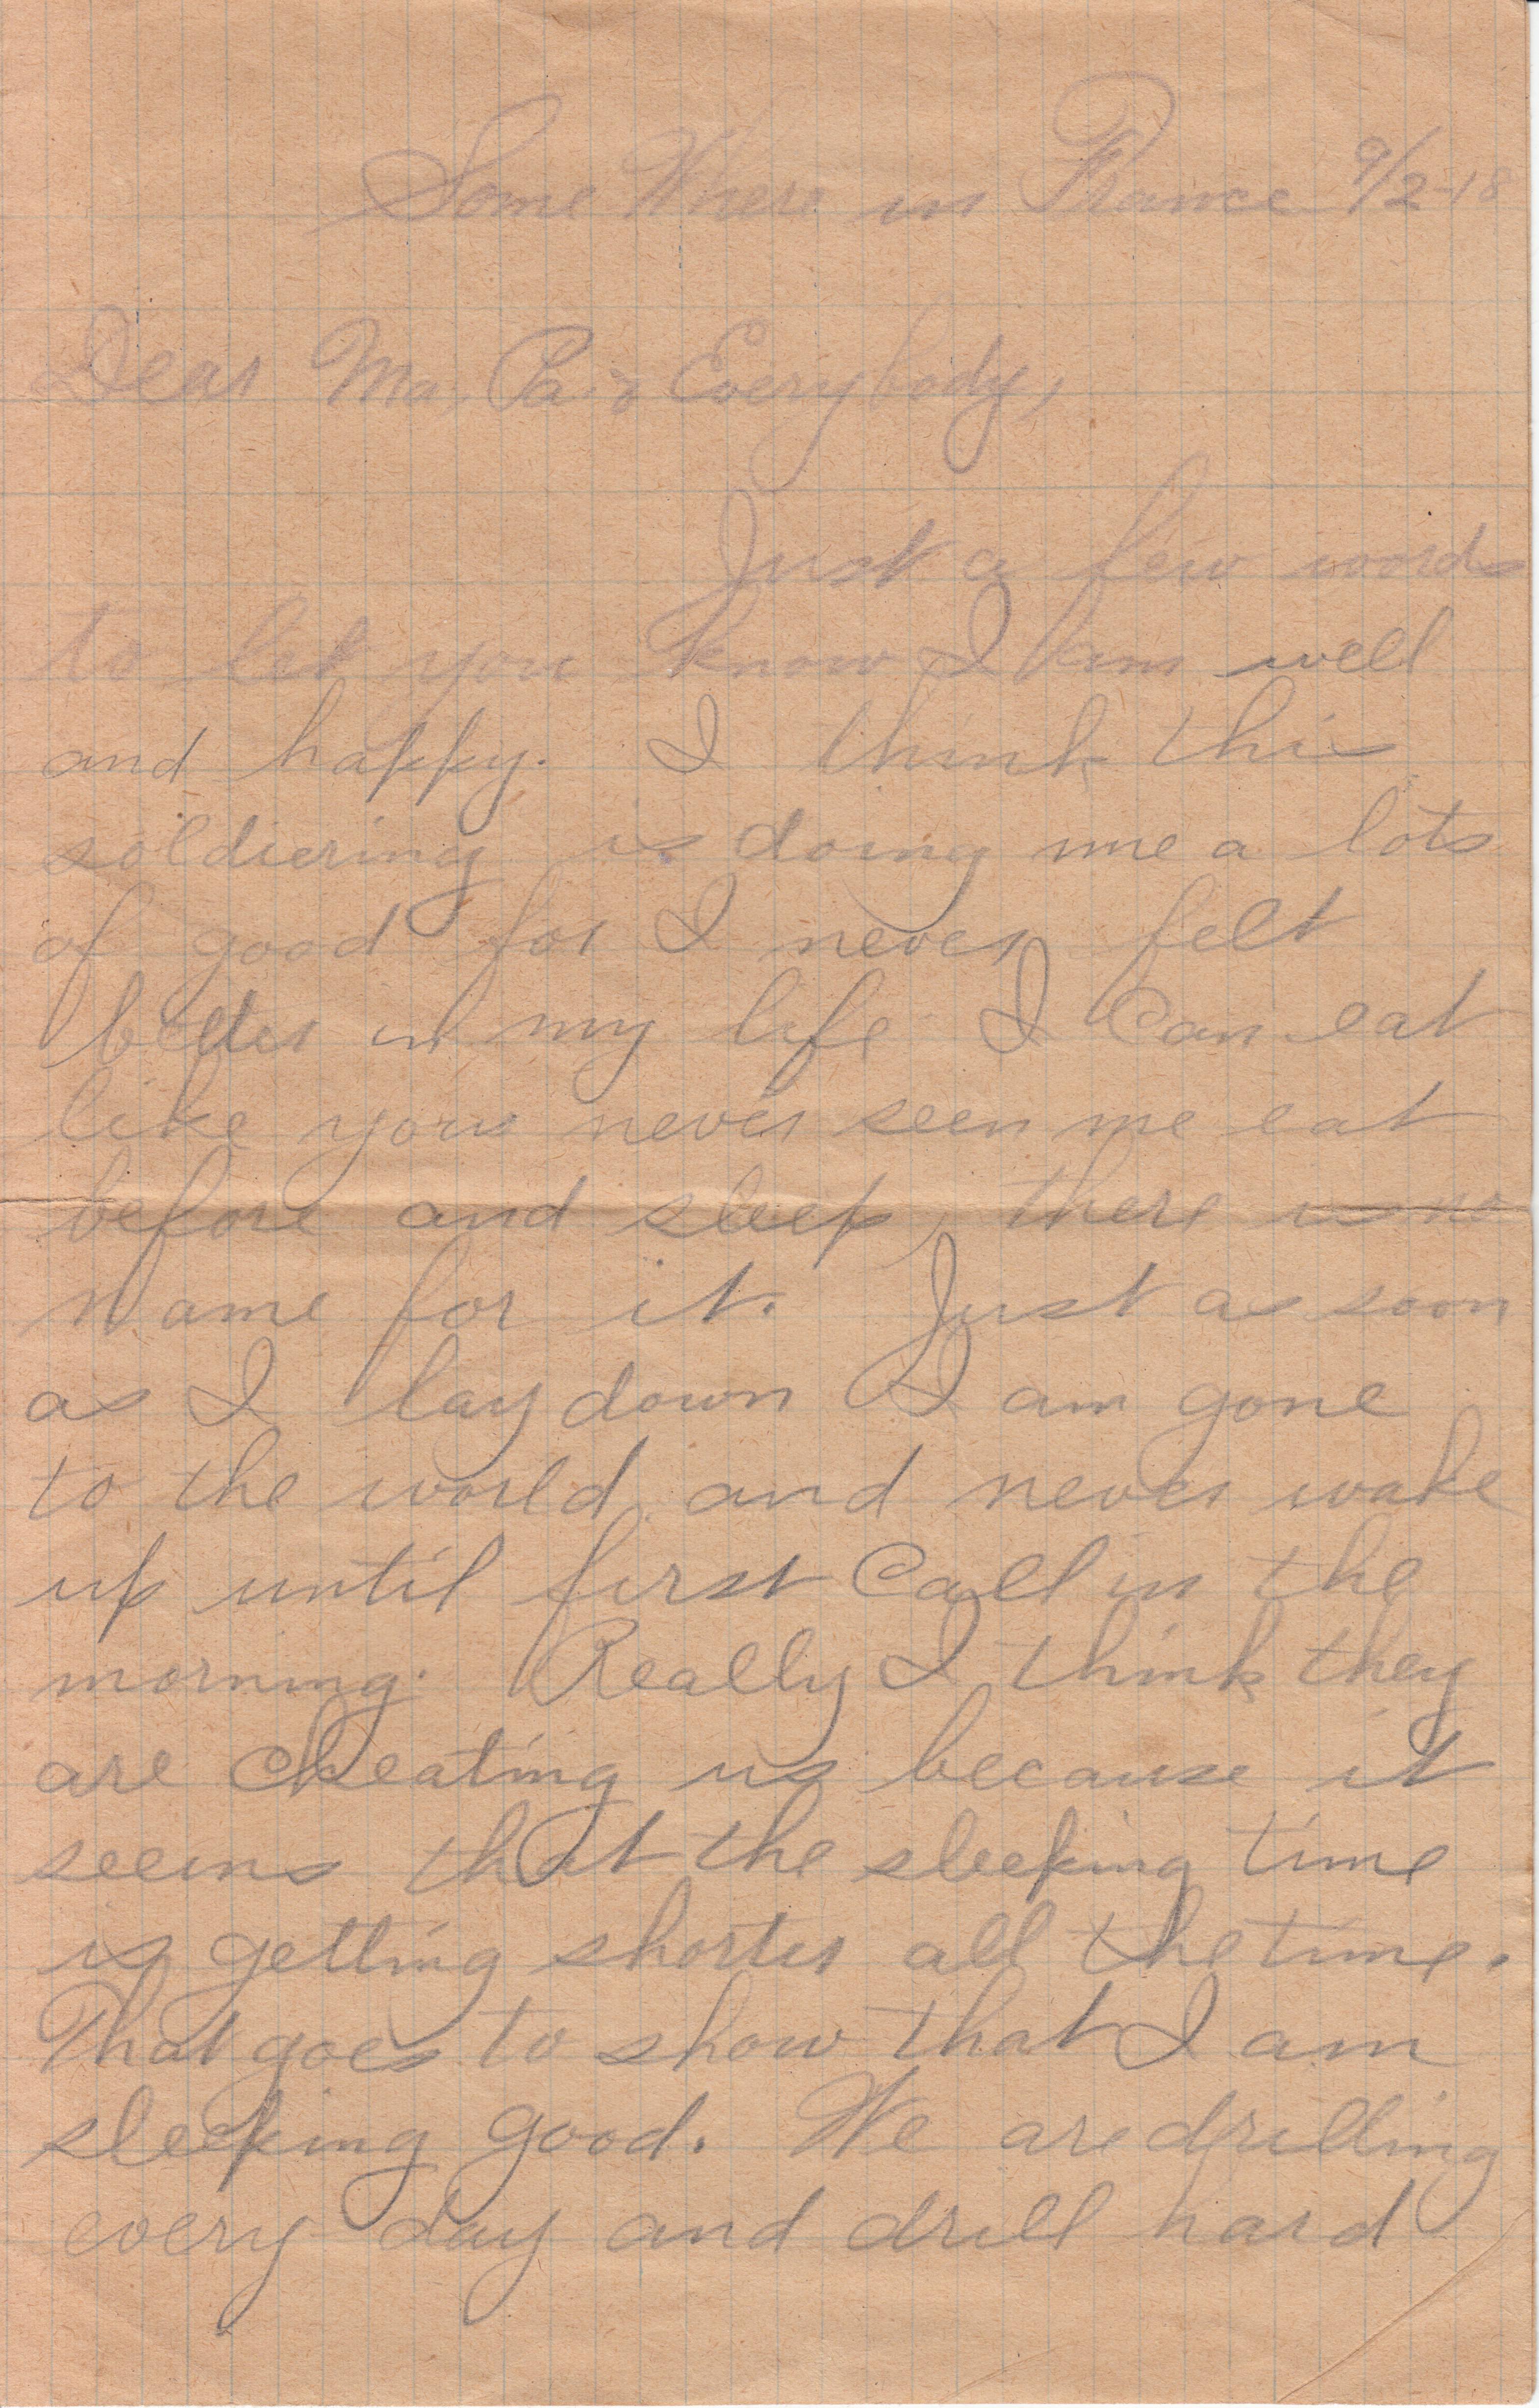 Some Where in France 9/2-18
Dear Ma, Pa & Everybody,
Just a few words
to let you know I am well
and happy. I think this
soldiering is doing me a lots
of good for I never felt
better in my life I can eat
like your never seen me eat
before and sleep, there is no
name for it. Just as soon
as I lay down I am gone
to the world, and never wake
up until first Call in the
morning. Really I think they
are cheating us because it
seems that the sleeping time
is getting shorter all the time.
That goes to show that I am
sleeping good. We are drilling
every day and drill hard